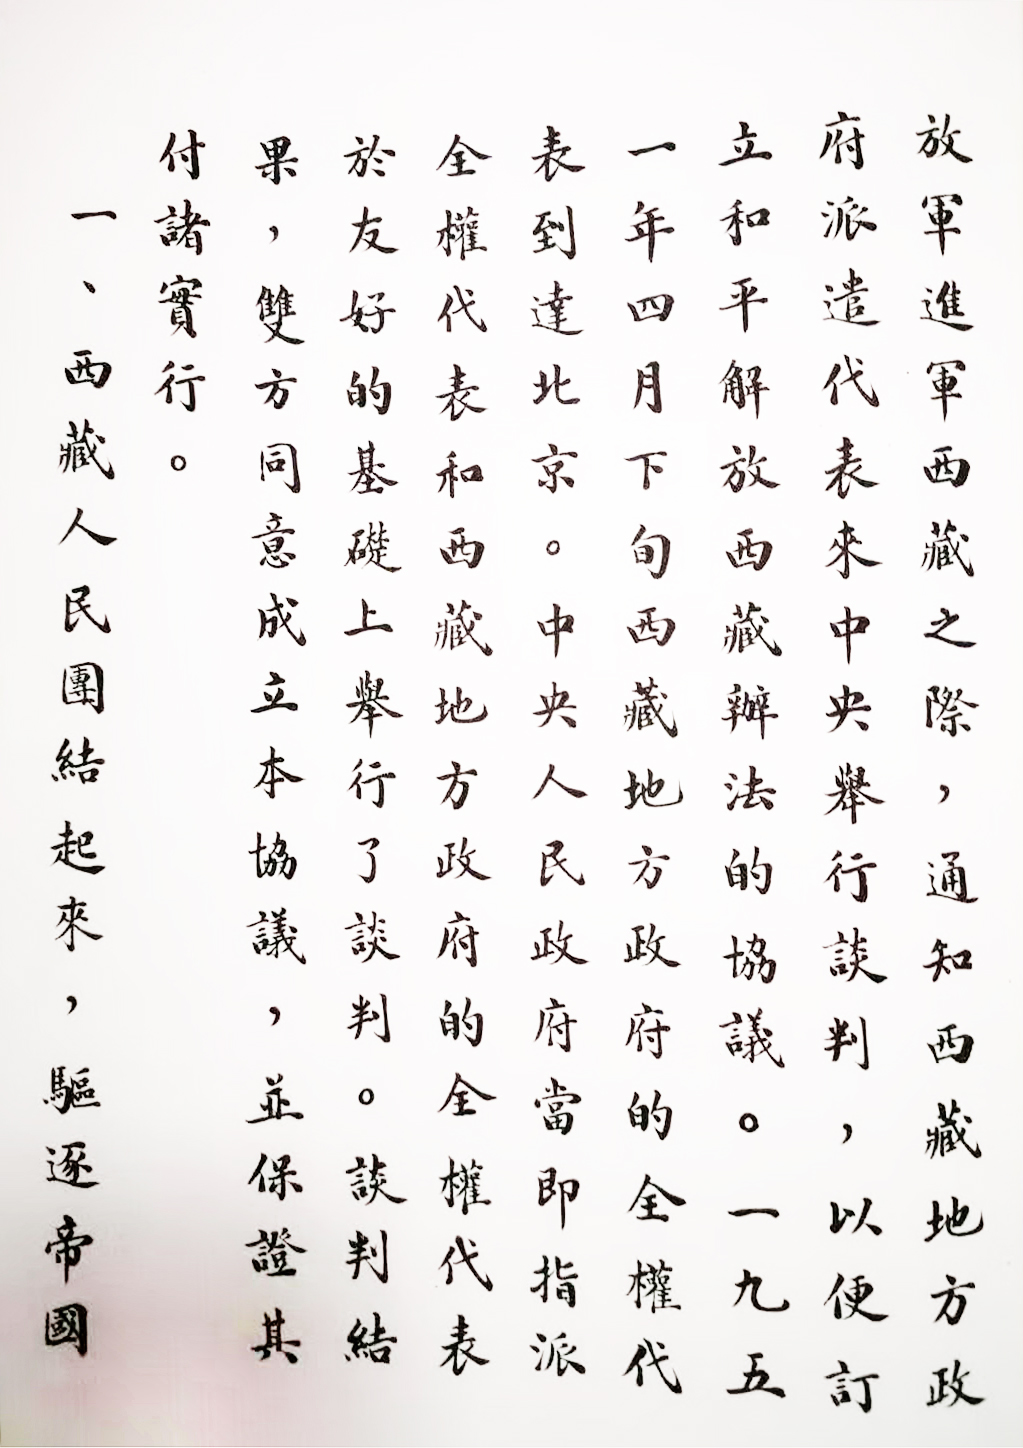 放軍進軍西藏之際，通知西藏地方政
府派遣代表來中央舉行談判，以便訂
立和平解放西藏辦法的協議。一九五
一年四月下旬西藏地方政府的全權代
表到達北京。中央人民政府當即指派
全權代表和西藏地方政府的全權代表
於友好的基礎上舉行了談判。談判結
果，雙方同意成立本協議，並保證其
付諸實行。
一、西藏人民團結起來，驅逐帝國